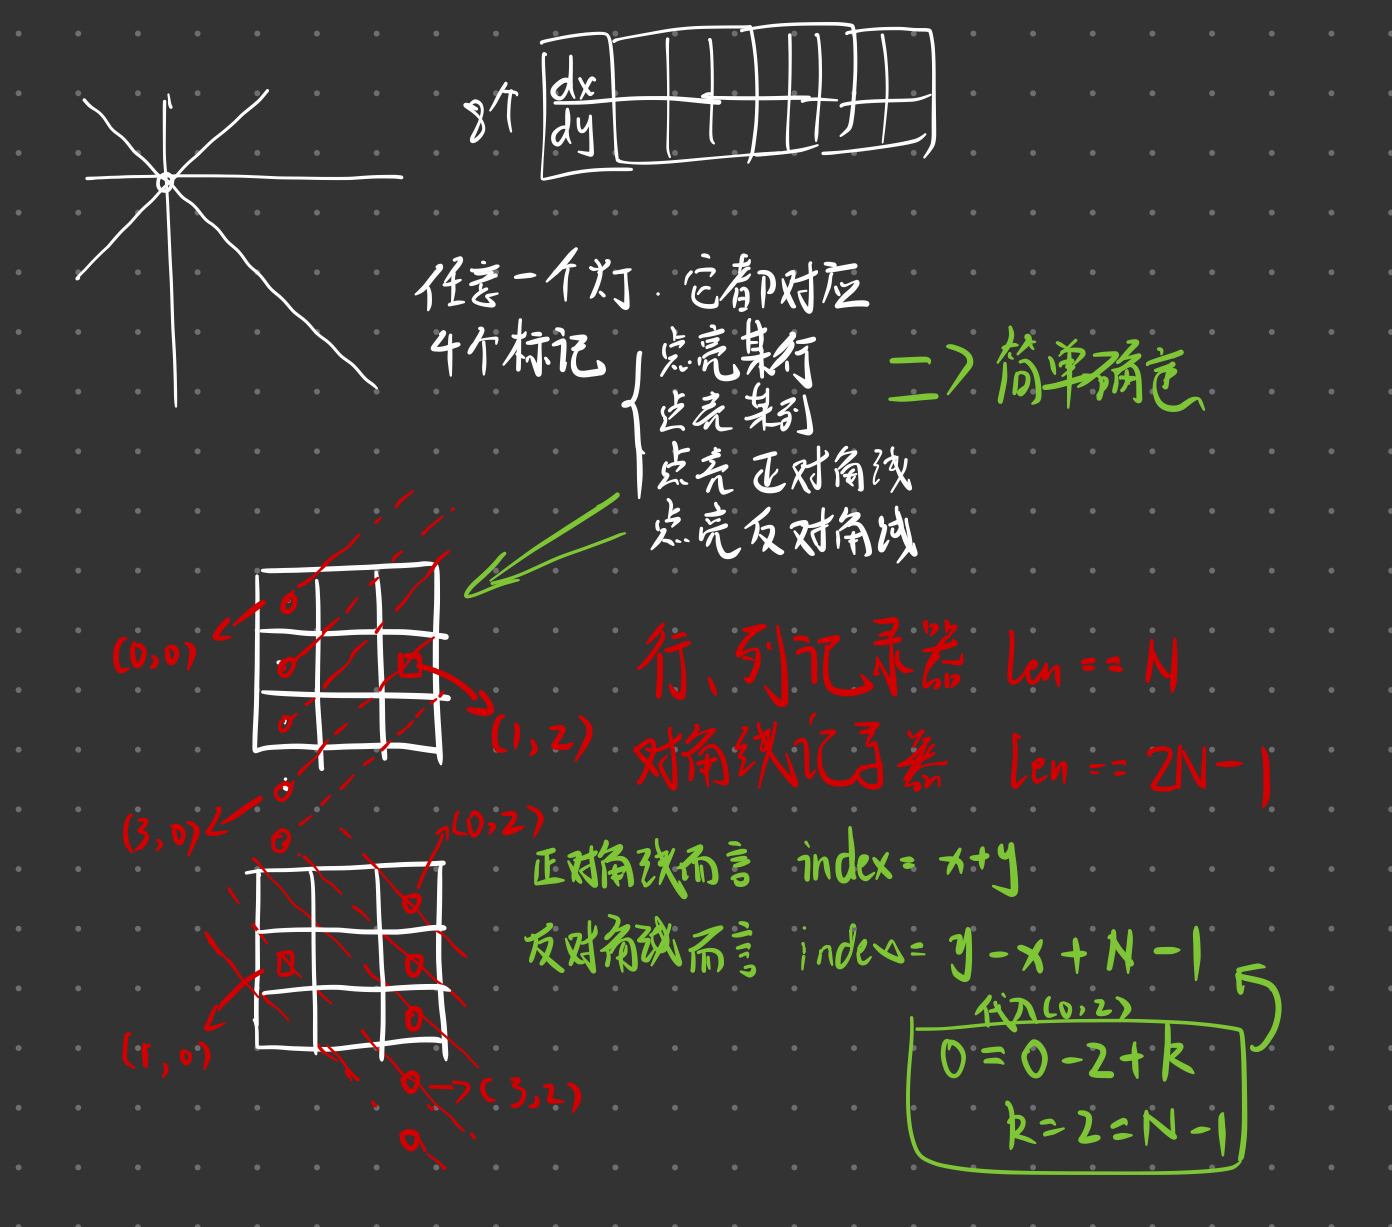 8个
dx
dy
任意一个灯.它都对应
4个标记
点亮某行
点亮某列
点亮正对角线
点亮反对角线
=> 简单确定
(0,0)
(1,2)
(3,0)
行、列记录器 len == N
对角线记录器 len == 2N-1
(0,2)
(1,0)
(3,2)
正对角线而言 index= x+y
反对角线而言 index= y-x+N-1
代入(0,2)
0=0-2+k
k=2=N-1